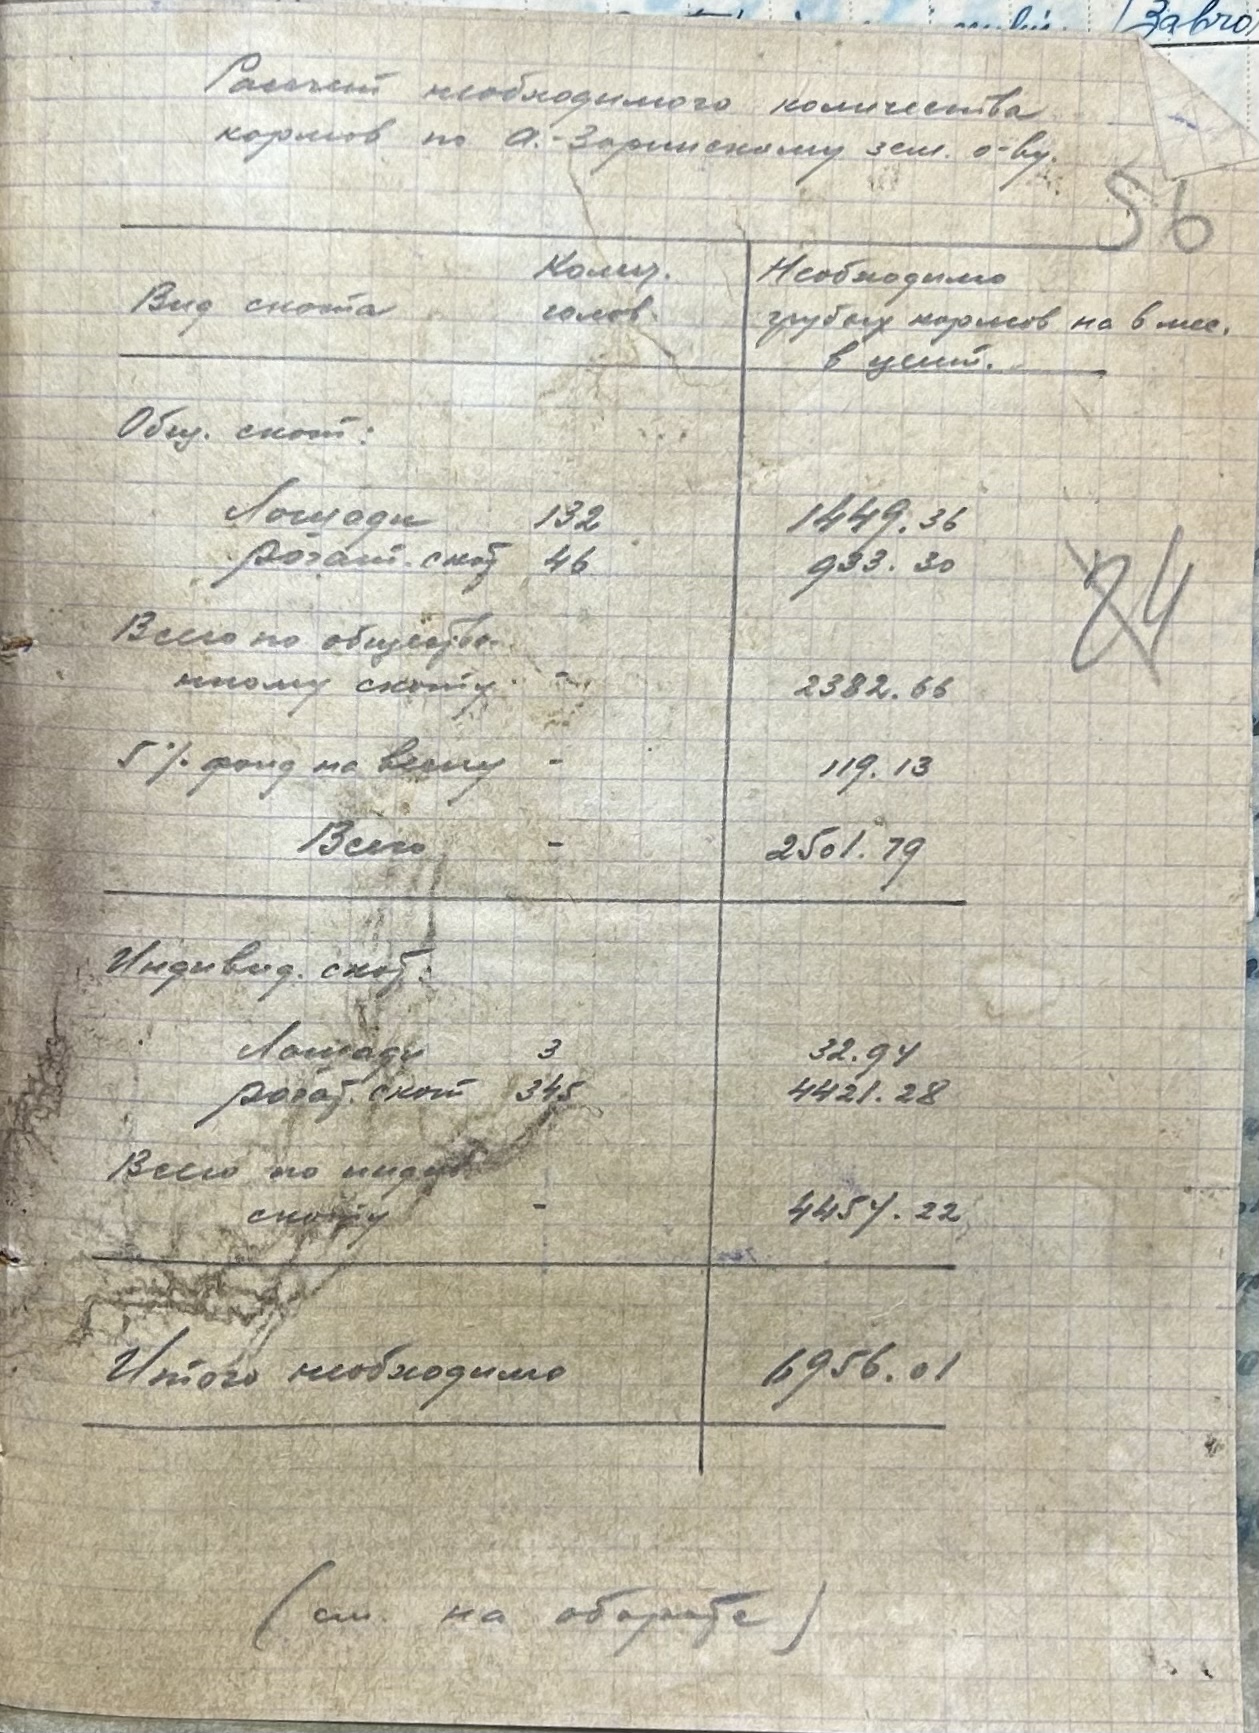 Завго
Расчет необходимого количества
кормов по А.-Заринскому зем. о-ву.
56
Вид скота Колич. голов. Необходимо
грубых кормов на 6 мес.
в цент.
Общ. скот:
Лошади 132 1449.36
рогат. скот 46 933.30
24
Всего по обществен-
ному скоту - 2382.66
5% фонд на весну - 119.13
Всего - 2501.79
Индивид. скот:
Лошади 3 32.94
рогат. скот 345 4421.28
Всего по индив.
скоту - 4454.22
Итого необходимо 6956.01
(см. на обороте)